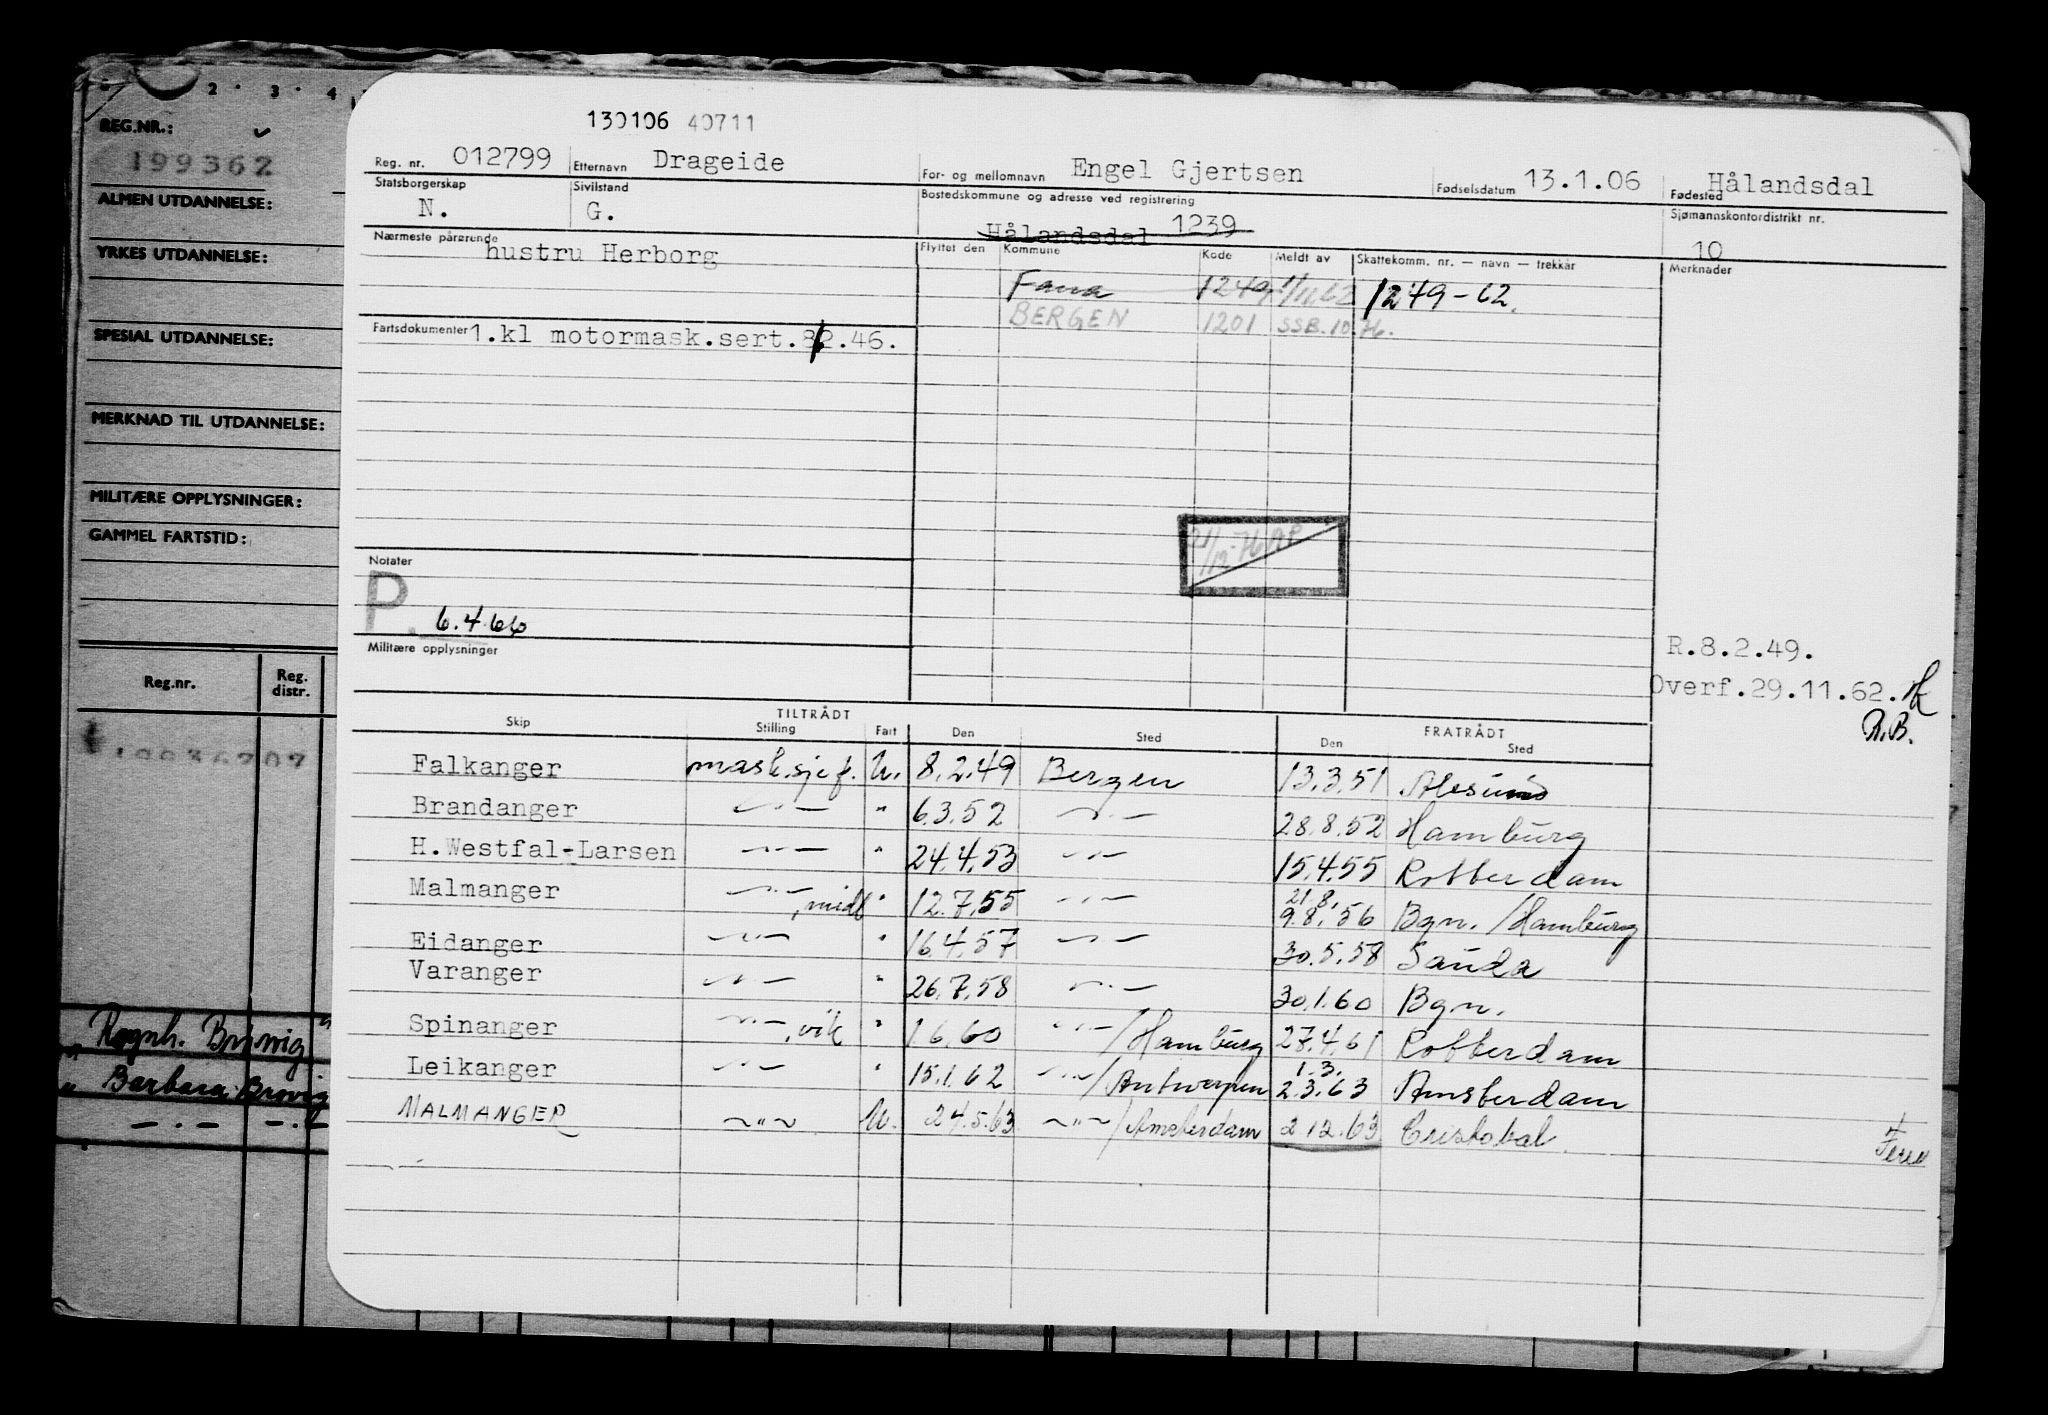 2 · 3 · 4
REG.NR.:
199362
ALMEN UTDANNELSE:
YRKES UTDANNELSE:
SPESIAL UTDANNELSE:
MERKNAD TIL UTDANNELSE:
MILITÆRE OPPLYSNINGER:
GAMMEL FARTSTID:
Reg.nr. Reg. distr.
Ragnh. Brøvig "
" Barbara Brovig
— · — — · —
130106 40711
Reg. nr. 012799 Etternavn Drageide For- og mellomnavn Engel Gjertsen Fødselsdatum 13.1.06 Fødested Hålandsdal
Statsborgerskap N. Sivilstand G. Bostedskommune og adresse ved registrering Hålandsdal 1239 Sjømannskontordistrikt nr. 10
Nærmeste pårørende hustru Herborg Flyttet den Kommune Kode Meldt av Skattekomm. nr. — navn — trekkår Merknader
Fana 1249 1/11.62 1249-62.
BERGEN 1201 SSB.10.76.
Fartsdokumenter 1.kl motormask.sert.8/2.46.
21/12-76 AP
Notater
P. 6.4.66
Militære opplysninger
R.8.2.49.
Overf.29.11.62.
R.B.
TILTRÅDT FRATRÅDT
Skip Stilling Fart Den Sted Den Sted
Falkanger mask.sjef. U. 8.2.49 Bergen 13.3.51 Ålesund
Brandanger —"— " 6.3.52 —"— 28.8.52 Hamburg
H.Westfal-Larsen —"— " 24.4.53 —"— 15.4.55 Rotterdam
Malmanger —"—, midl " 12.7.55 —"— 21.8. 9.8.56 Bgn. / Hamburg
Eidanger —"— " 16.4.57 —"— 30.5.58 Sauda
Varanger —"— " 26.7.58 —"— 30.1.60 Bgn.
Spinanger —"—, vik " 1.6.60 —"— / Hamburg 27.4.61 Rotterdam
Leikanger —"— " 15.1.62 —"— / Antwerpen 1.3. 2.3.63 Amsterdam
MALMANGER —"— U. 24.5.63 —"— / Amsterdam 2.12.63 Cristobal